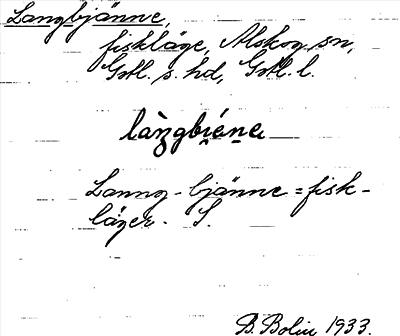 Langbjänne,
fiskläge, Alskog sn,
Gotl. s. hd, Gotl. l.
làŋgbi̯éne
Lanng-bjänne = fisk-
läger. S.
B. Bolin 1933.